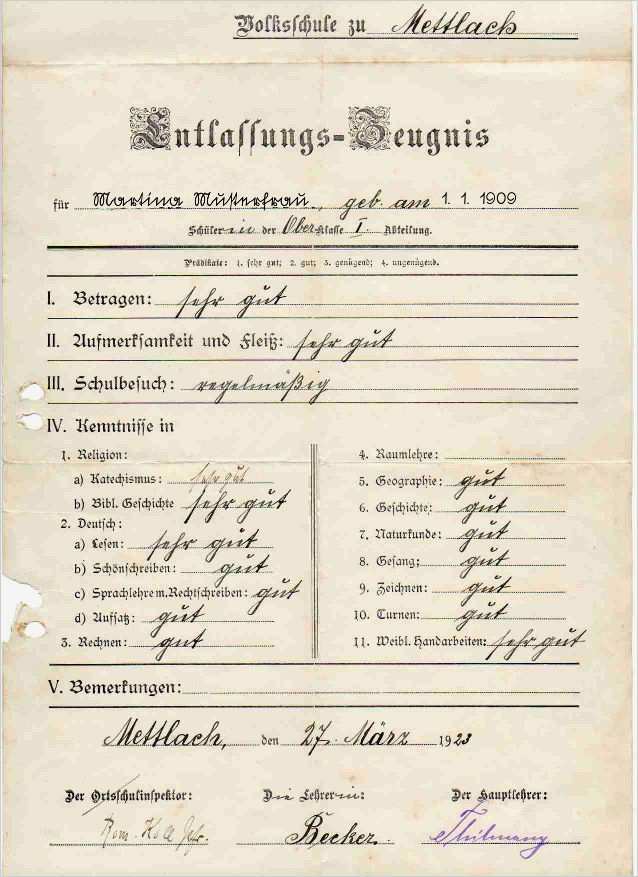 Volksschule zu Mettlach
Entlassungs-Zeugnis
für Martina Musterfrau, geb. am 1. 1. 1909
Schülerin in der Ober-Klasse I. Abteilung.
Prädikate: 1. sehr gut; 2. gut; 3. genügend; 4. ungenügend.
I. Betragen: sehr gut
II. Aufmerksamkeit und Fleiß: sehr gut
III. Schulbesuch: regelmäßig
IV. Kenntnisse in
1. Religion:
a) Katechismus: sehr gut
b) Bibl. Geschichte sehr gut
2. Deutsch:
a) Lesen: sehr gut
b) Schönschreiben: gut
c) Sprachlehre m. Rechtschreiben: gut
d) Aufsatz: gut
3. Rechnen: gut
4. Raumlehre:
5. Geographie: gut
6. Geschichte: gut
7. Naturkunde: gut
8. Gesang: gut
9. Zeichnen: gut
10. Turnen: gut
11. Weibl. Handarbeiten: sehr gut
V. Bemerkungen:
Mettlach, den 27. März 1923
Der Ortsschulinspektor: Die Lehrerin: Der Hauptlehrer:
Becker Thilmany